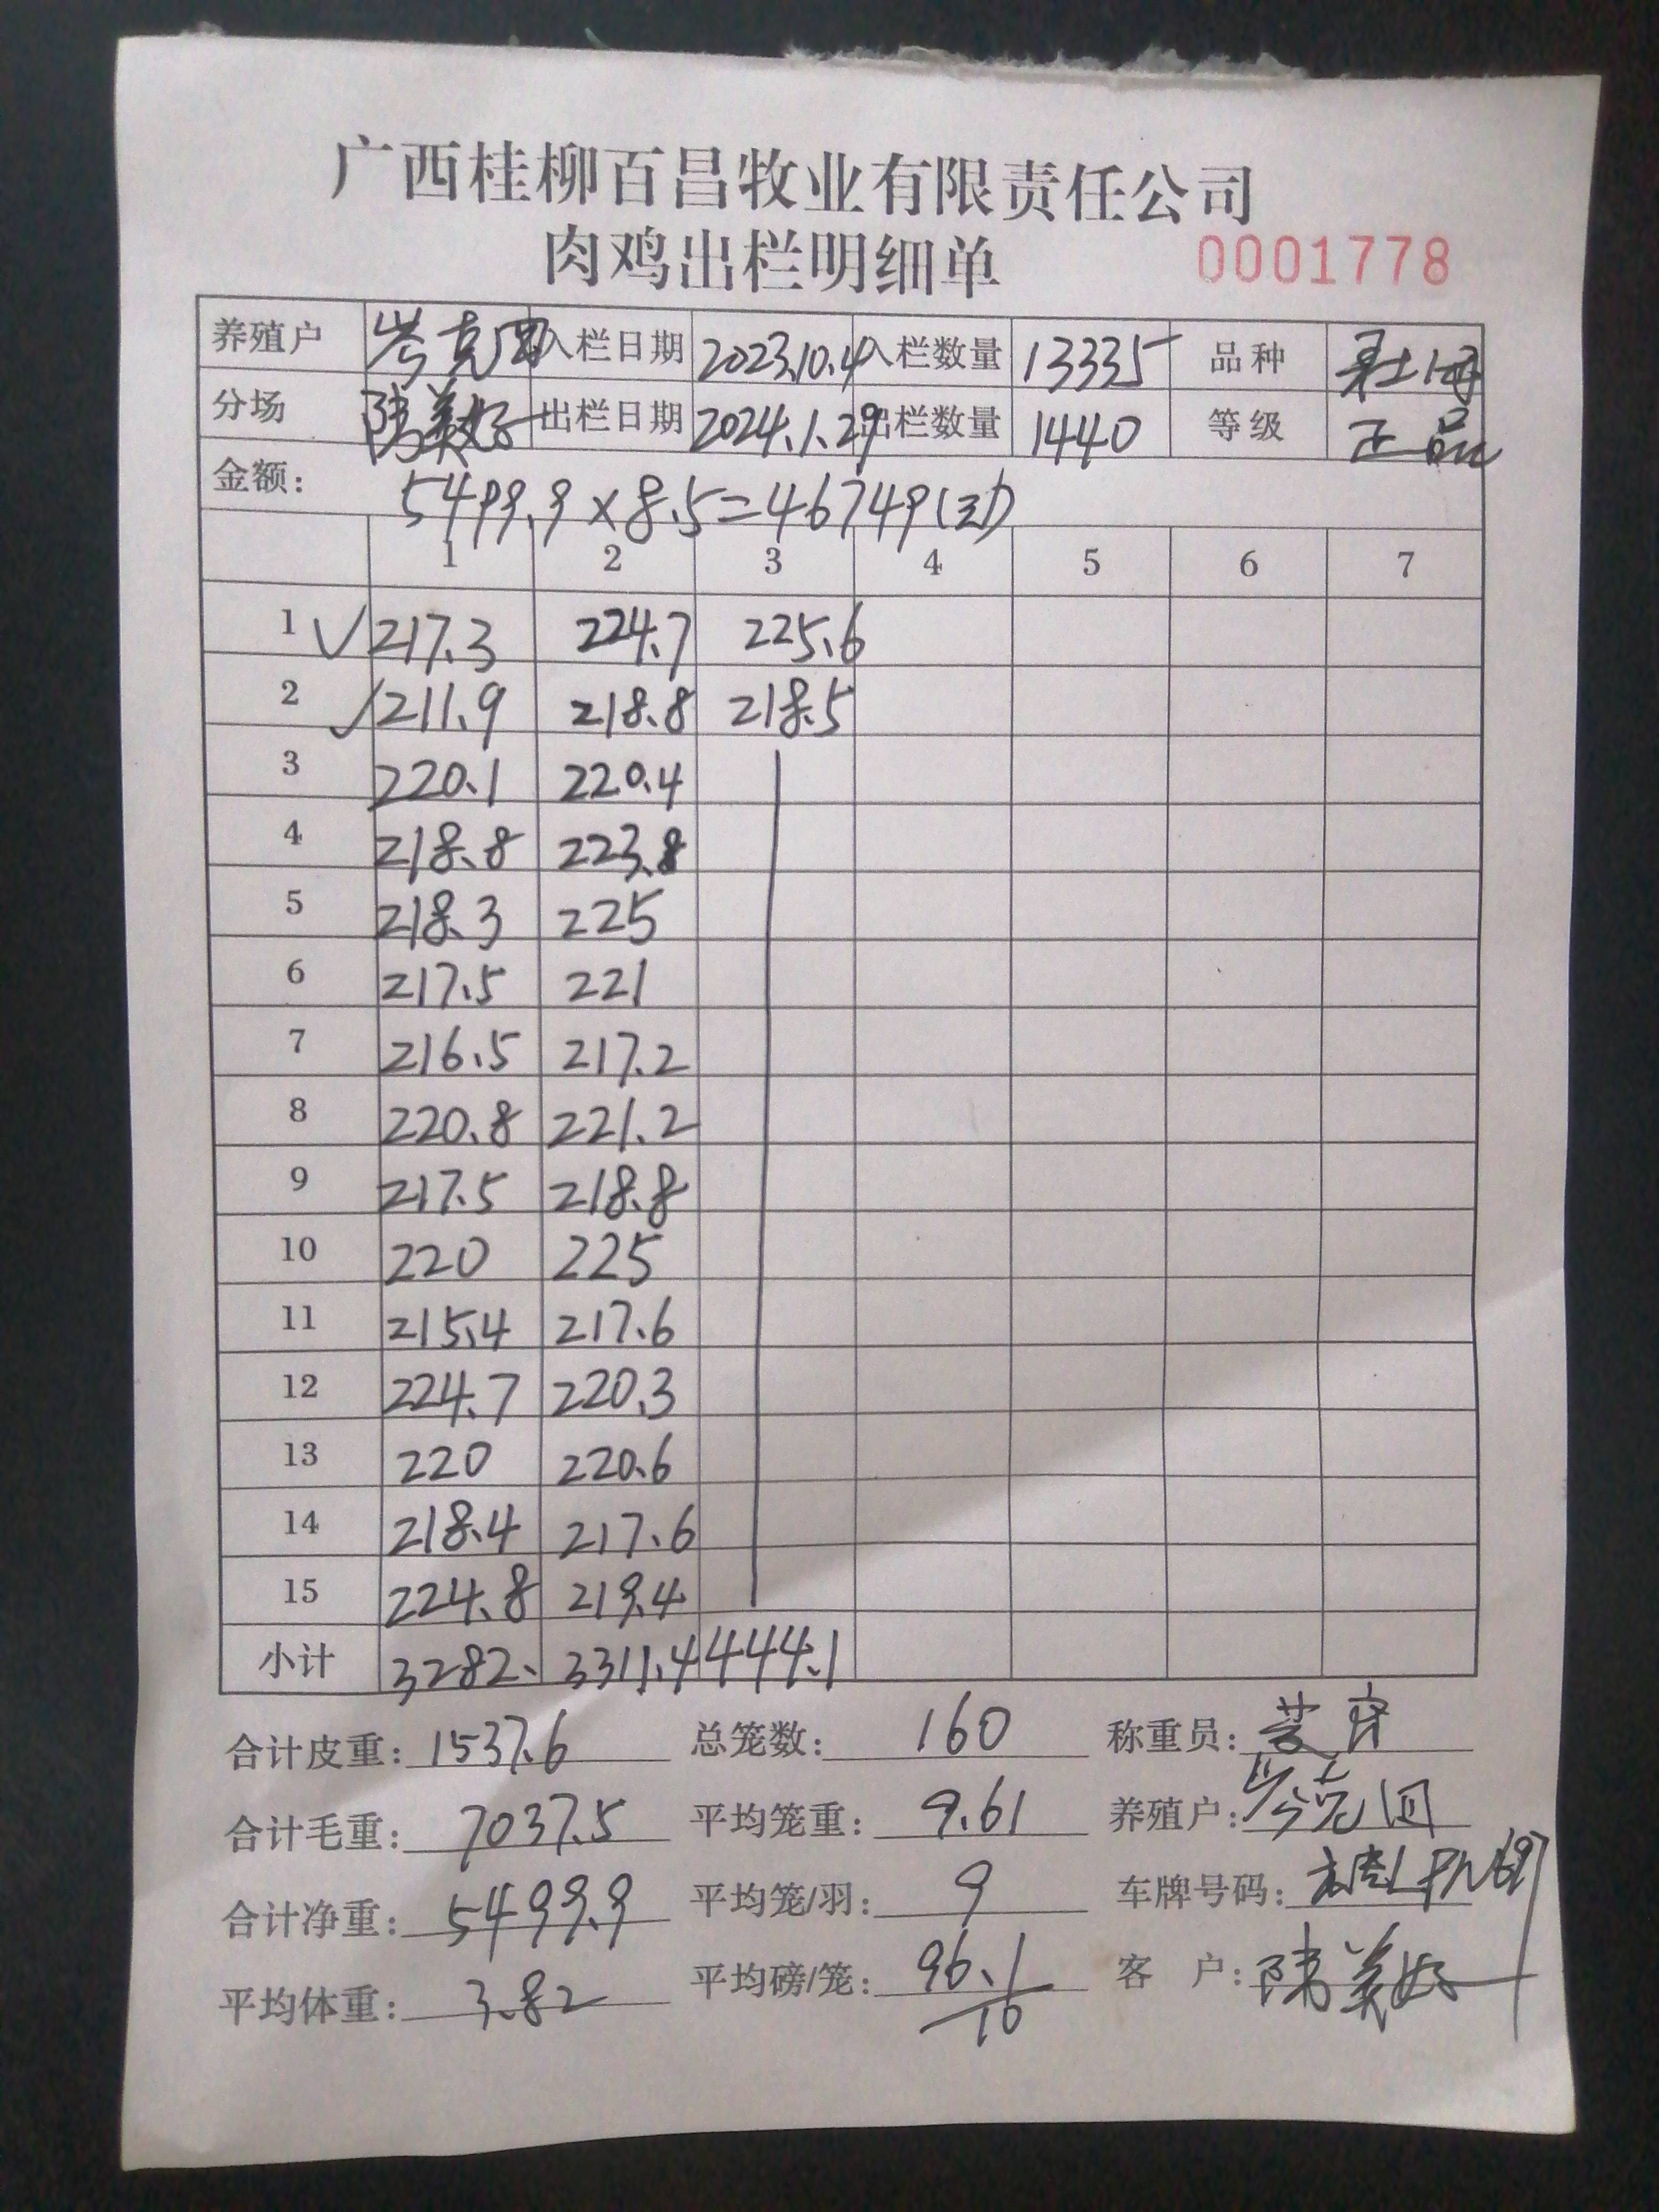 广西桂柳百昌牧业有限责任公司
肉鸡出栏明细单 0001778
养殖户 岑克 入栏日期 2023.10.4 入栏数量 13335 品种
分场 陈美好 出栏日期 2024.1.29 出栏数量 1440 等级 正品
金额: 5499.9×8.5=46749(元)
1 2 3 4 5 6 7
1 √ 217.3 224.7 225.6
2 √ 211.9 218.8 218.5
3 220.1 220.4
4 218.8 223.8
5 218.3 225
6 217.5 221
7 216.5 217.2
8 220.8 221.2
9 217.5 218.8
10 220 225
11 215.4 217.6
12 224.7 220.3
13 220 220.6
14 218.4 217.6
15 224.8 219.4
小计 3282. 3311.4 444.1
合计皮重: 1537.6 总笼数: 160 称重员:
合计毛重: 7037.5 平均笼重: 9.61 养殖户: 岑克
合计净重: 5499.9 平均笼/羽: 9 车牌号码:
平均体重: 3.82 平均磅/笼: 96.1/10 客 户: 陈美好